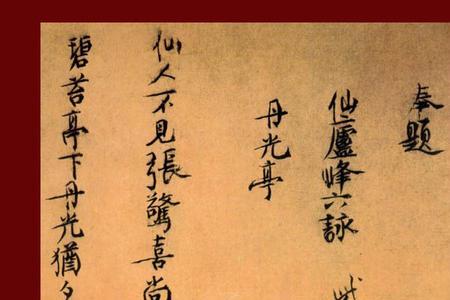 奉題
仙廬峰六詠
丹光亭
仙人不見張驚喜尚
碧苔亭下丹光猶